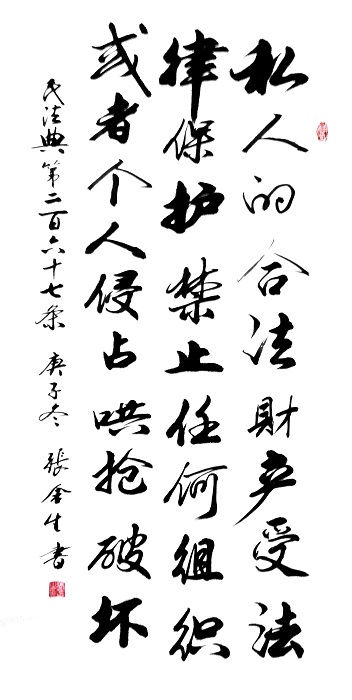 私人的合法財产受法
律保护禁止任何組织
或者个人侵占哄抢破坏
民法典第二百六十七条 庚子冬 張金生書